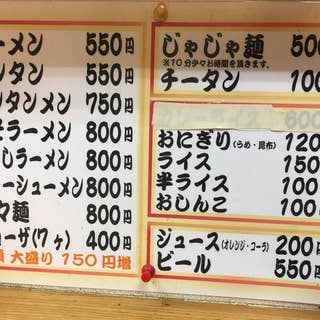 ーメン 550円
ンタン 550円
ンタンメン 750円
ラーメン 800円
しラーメン 800円
ーシューメン 800円
々麺 800円
ョーザ(7ヶ) 400円
大盛り 150円増
じゃじゃ麺 500
※10分少々お時間を頂きます。
チータン 100
カレーライス 600
おにぎり(うめ・昆布) 120
ライス 150
半ライス 100円
おしんこ 100円
ジュース(オレンジ・コーラ) 200円
ビール 550円